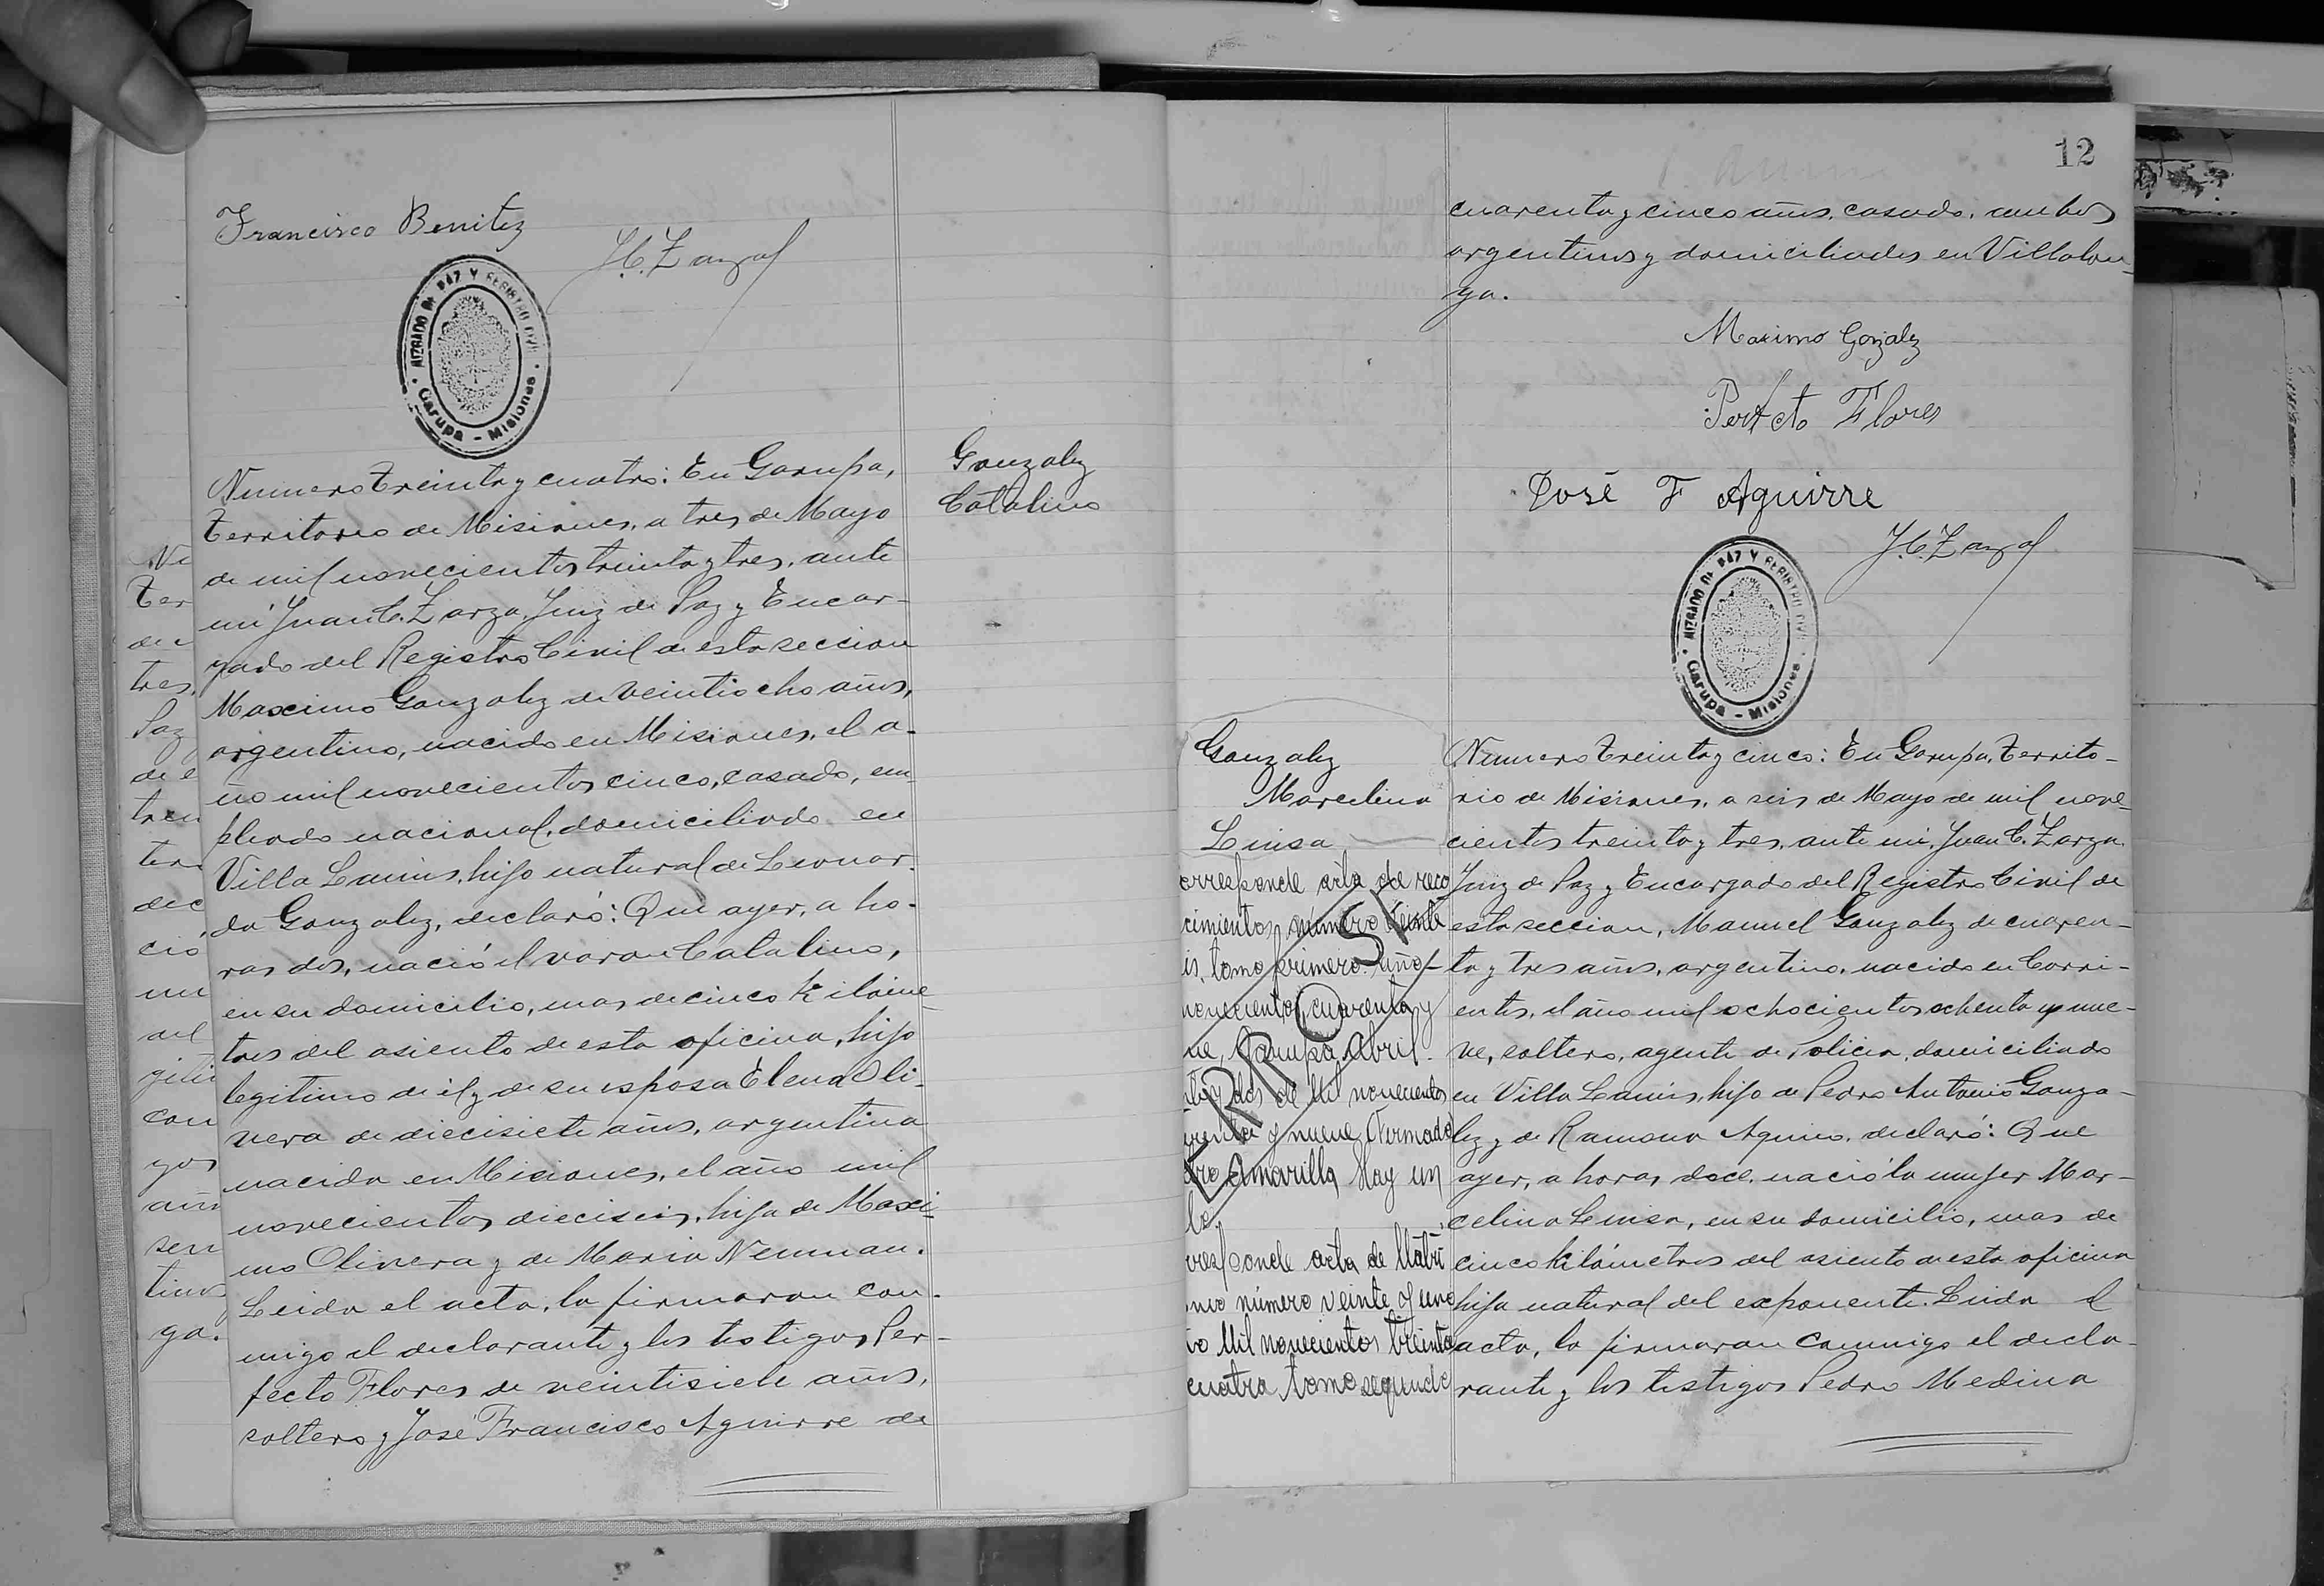 Francisco Benitez
J.C. Zarza
JUZGADO DE PAZ Y REGISTRO CIVIL
Garupa - Misiones
Gonzalez
Catalino
Numero treinta y cuatro: En Garupa,
territorio de Misiones, a tres de Mayo
de mil novecientos treinta y tres, ante
mi Juan C. Zarza, Juez de Paz y Encar-
gado del Registro Civil de esta seccion
Maximo Gonzalez de veintiocho años,
argentino, nacido en Misiones, el a-
ño mil novecientos cinco, casado, em
pleado nacional, domiciliado en
Villa Lanús, hijo natural de Leonar-
da Gonzalez, declaró: Que ayer, a ho-
ras dos, nació el varon Catalino,
en su domicilio, mas de cinco kilóme-
tros del asiento de esta oficina, hijo
legitimo de él y de su esposa Elena Oli-
vera de diecisiete años, argentina
nacida en Misiones, el año mil
novecientos dieciseis, hija de Maxi-
mo Olivera y de Maria Neuman.
Leida el acta, la firmaron con-
migo el declarante y los testigos Per-
fecto Flores de veintisiete años,
soltero y José Francisco Aguirre de
12
cuarenta y cinco años, casado, ambos
argentinos y domiciliados en Villalon-
ga.
Maximo Gonzalez
Perfecto Flores
José F Aguirre
J.C. Zarza
JUZGADO DE PAZ Y REGISTRO CIVIL
Garupa - Misiones
Gonzalez
Marcelina
Luisa
orresponde acta de reco
cimientos número veinte
is, tomo primero. año
novecientos cuarenta y
ve, Garupa, Abril
dos de Mil novecientos
renta y nueve Firmado
dro Amarilla Hay un
lo.
ERROSE
rresponde acta de Matri
nio número veinte y uno
ño Mil novecientos treinta
cuatro tomo segundo
Numero treinta y cinco: En Garupa, territo-
rio de Misiones, a seis de Mayo de mil nove-
cientos treinta y tres, ante mi, Juan C. Zarza,
Juez de Paz y Encargado del Registro Civil de
esta seccion, Manuel Gonzalez de cuaren-
ta y tres años, argentino, nacido en Corri-
entes, el año mil ochocientos ochenta y nue-
ve, soltero, agente de Policia, domiciliado
en Villa Lanús, hijo de Pedro Antonio Gonza-
lez y de Ramona Aquino, declaró: Que
ayer, a horas doce, nació la mujer Mar-
celina Luisa, en su domicilio, mas de
cinco kilómetros del asiento de esta oficina
hija natural del exponente. Leida el
acta, la firmaron conmigo el decla-
rante y los testigos Pedro Medina